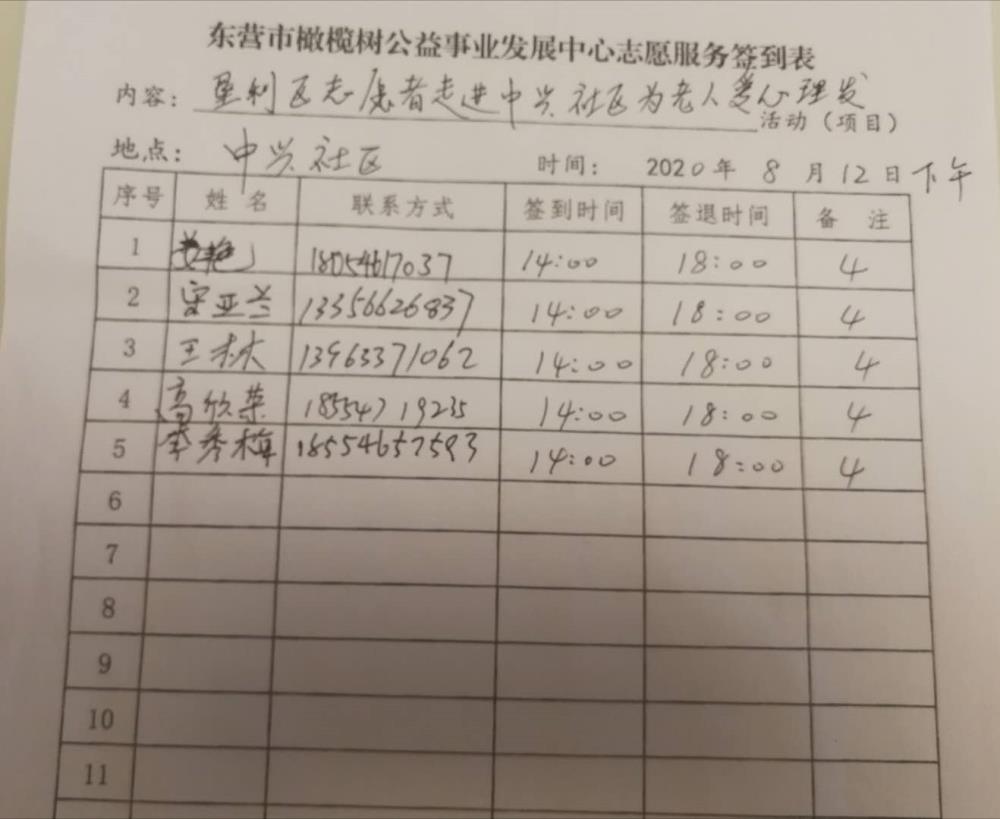 东营市橄榄树公益事业发展中心志愿服务签到表
内容：垦利区志愿者走进中兴社区为老人爱心理发 活动（项目）
地点：中兴社区 时间：2020年8月12日下午
序号 姓名 联系方式 签到时间 签退时间 备注
1 18054617037 14:00 18:00 4
2 宋亚兰 13356626837 14:00 18:00 4
3 王林 13963371062 14:00 18:00 4
4 高欣荣 18554719235 14:00 18:00 4
5 李秀梅 18554657593 14:00 18:00 4
6
7
8
9
10
11